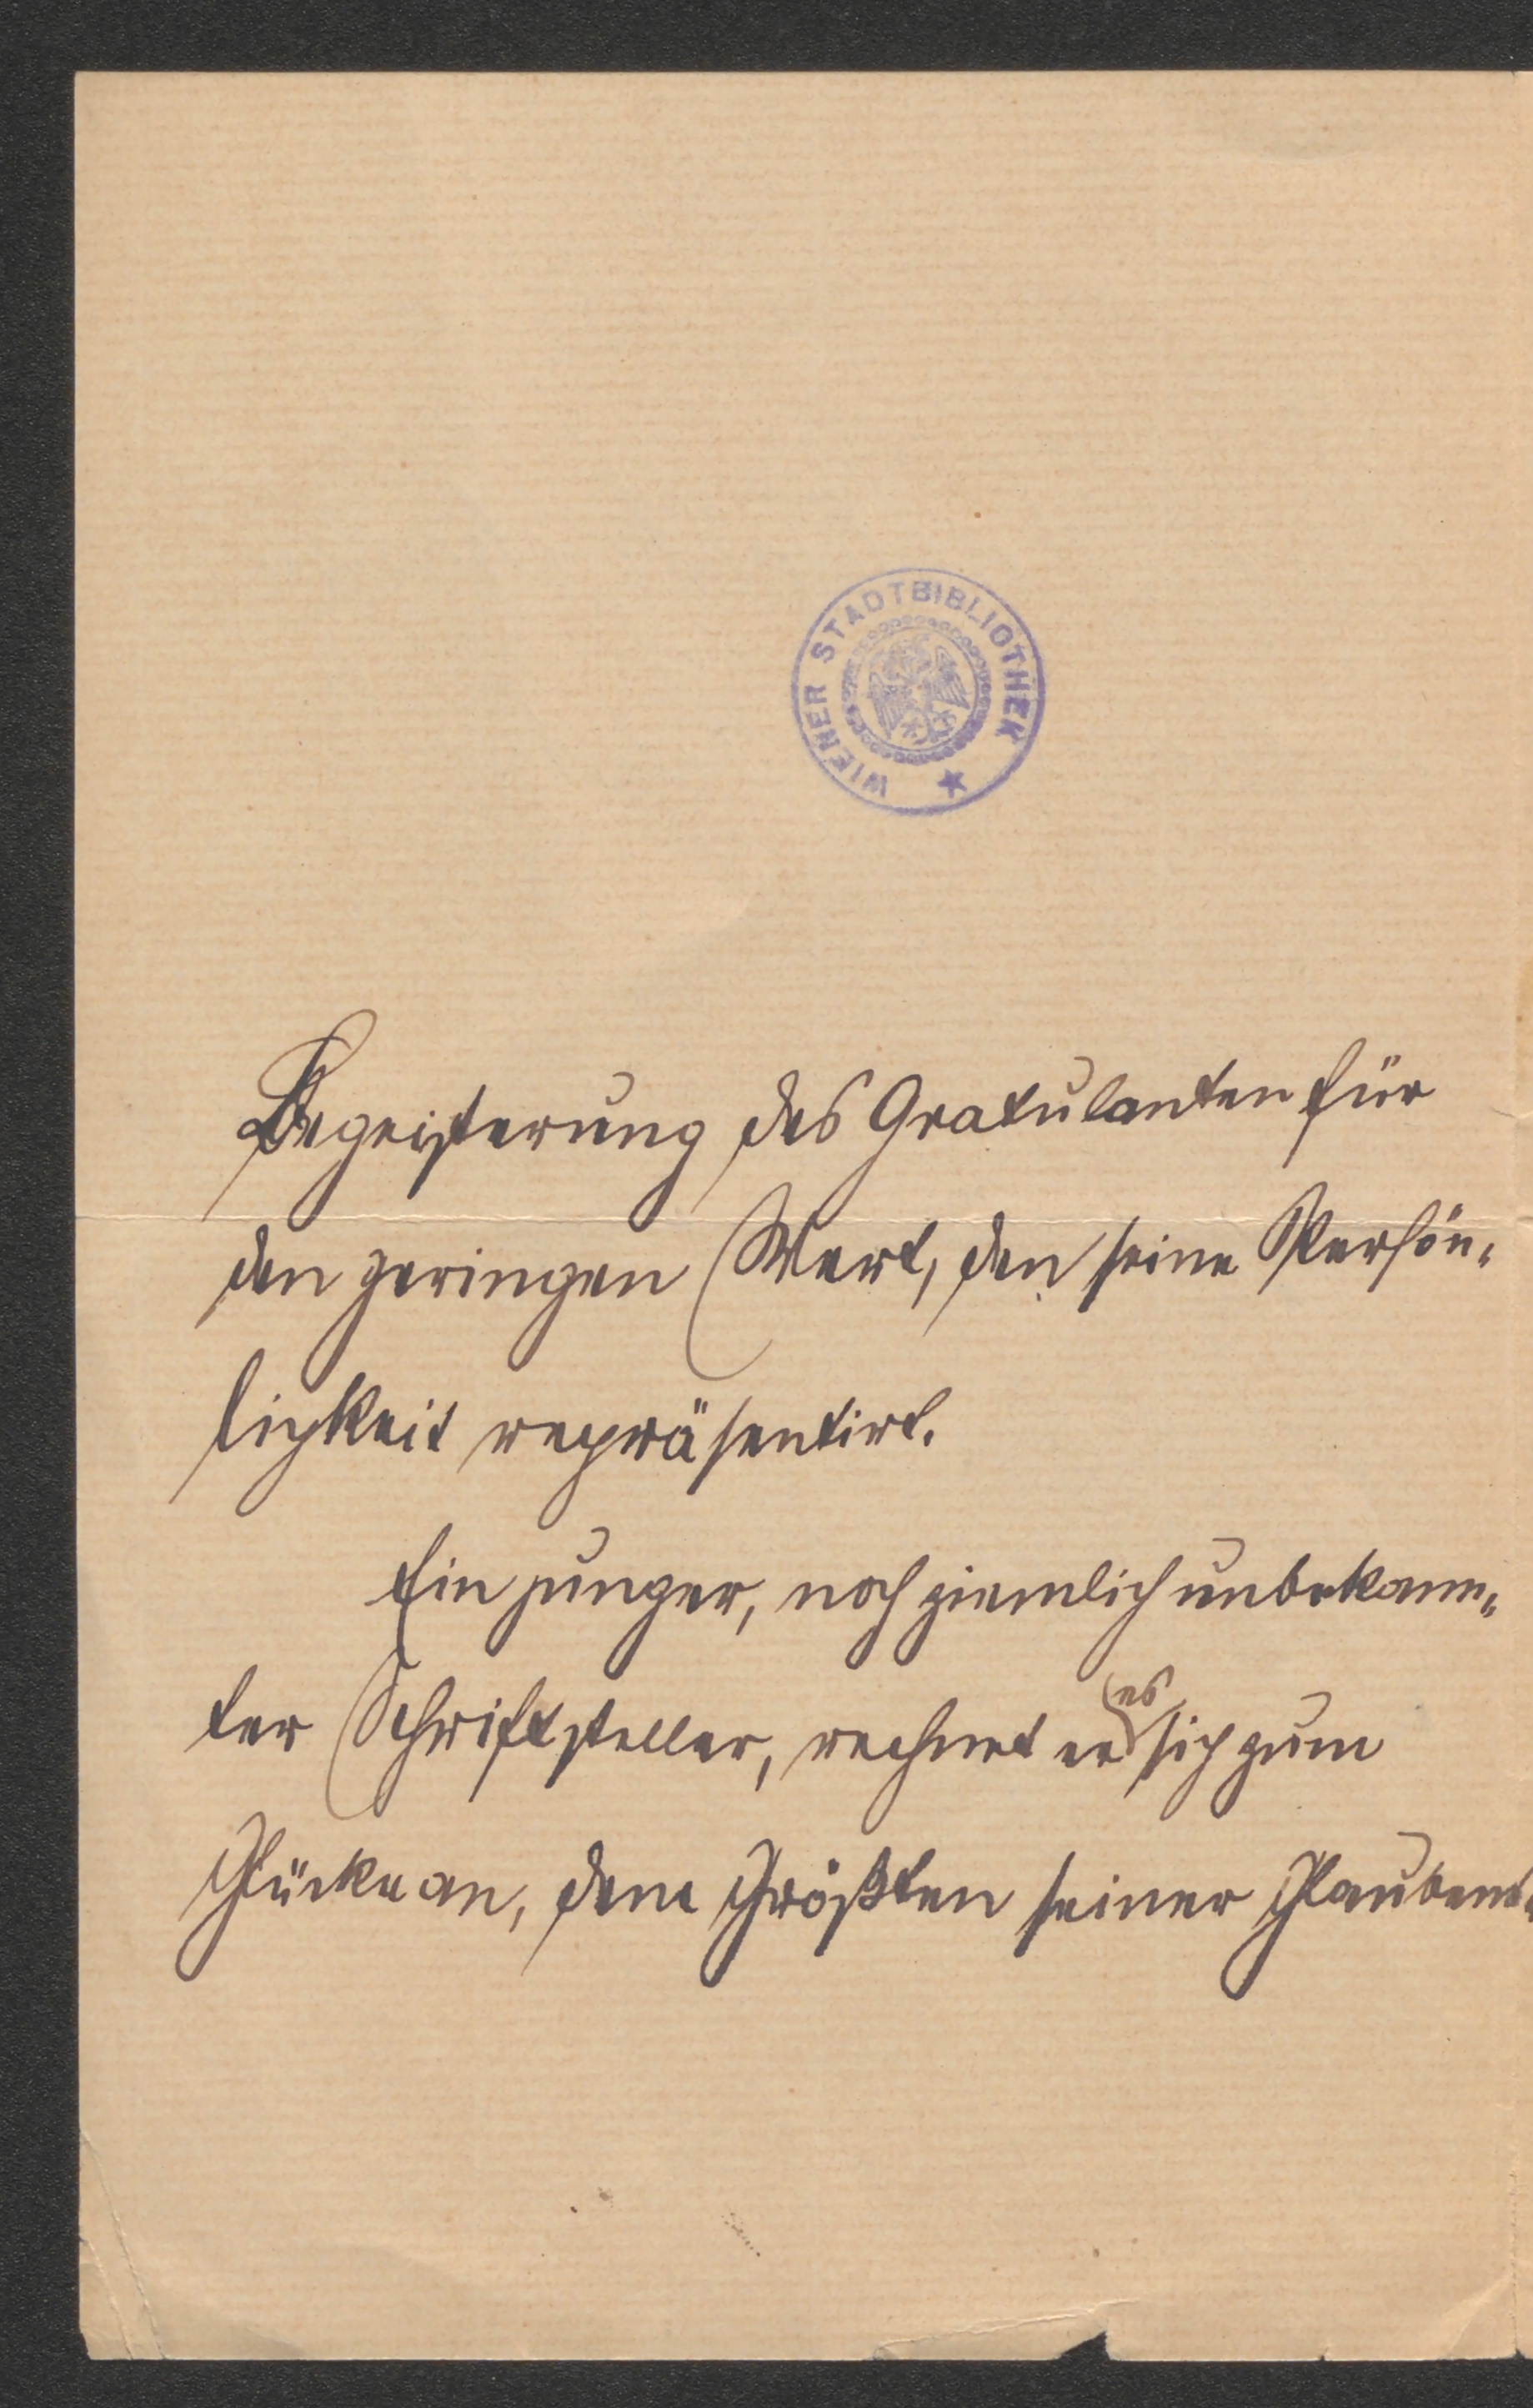 WIENER STADTBIBLIOTHEK
Begeisterung des Gratulanten für
den geringen Wert, den seine Persön-
lichkeit repräsentirt.
Ein junger, noch ziemlich unbekann-
ter Schriftsteller, rechnet er es sich zum
Glücke an, dem Größten seiner Glaubens-